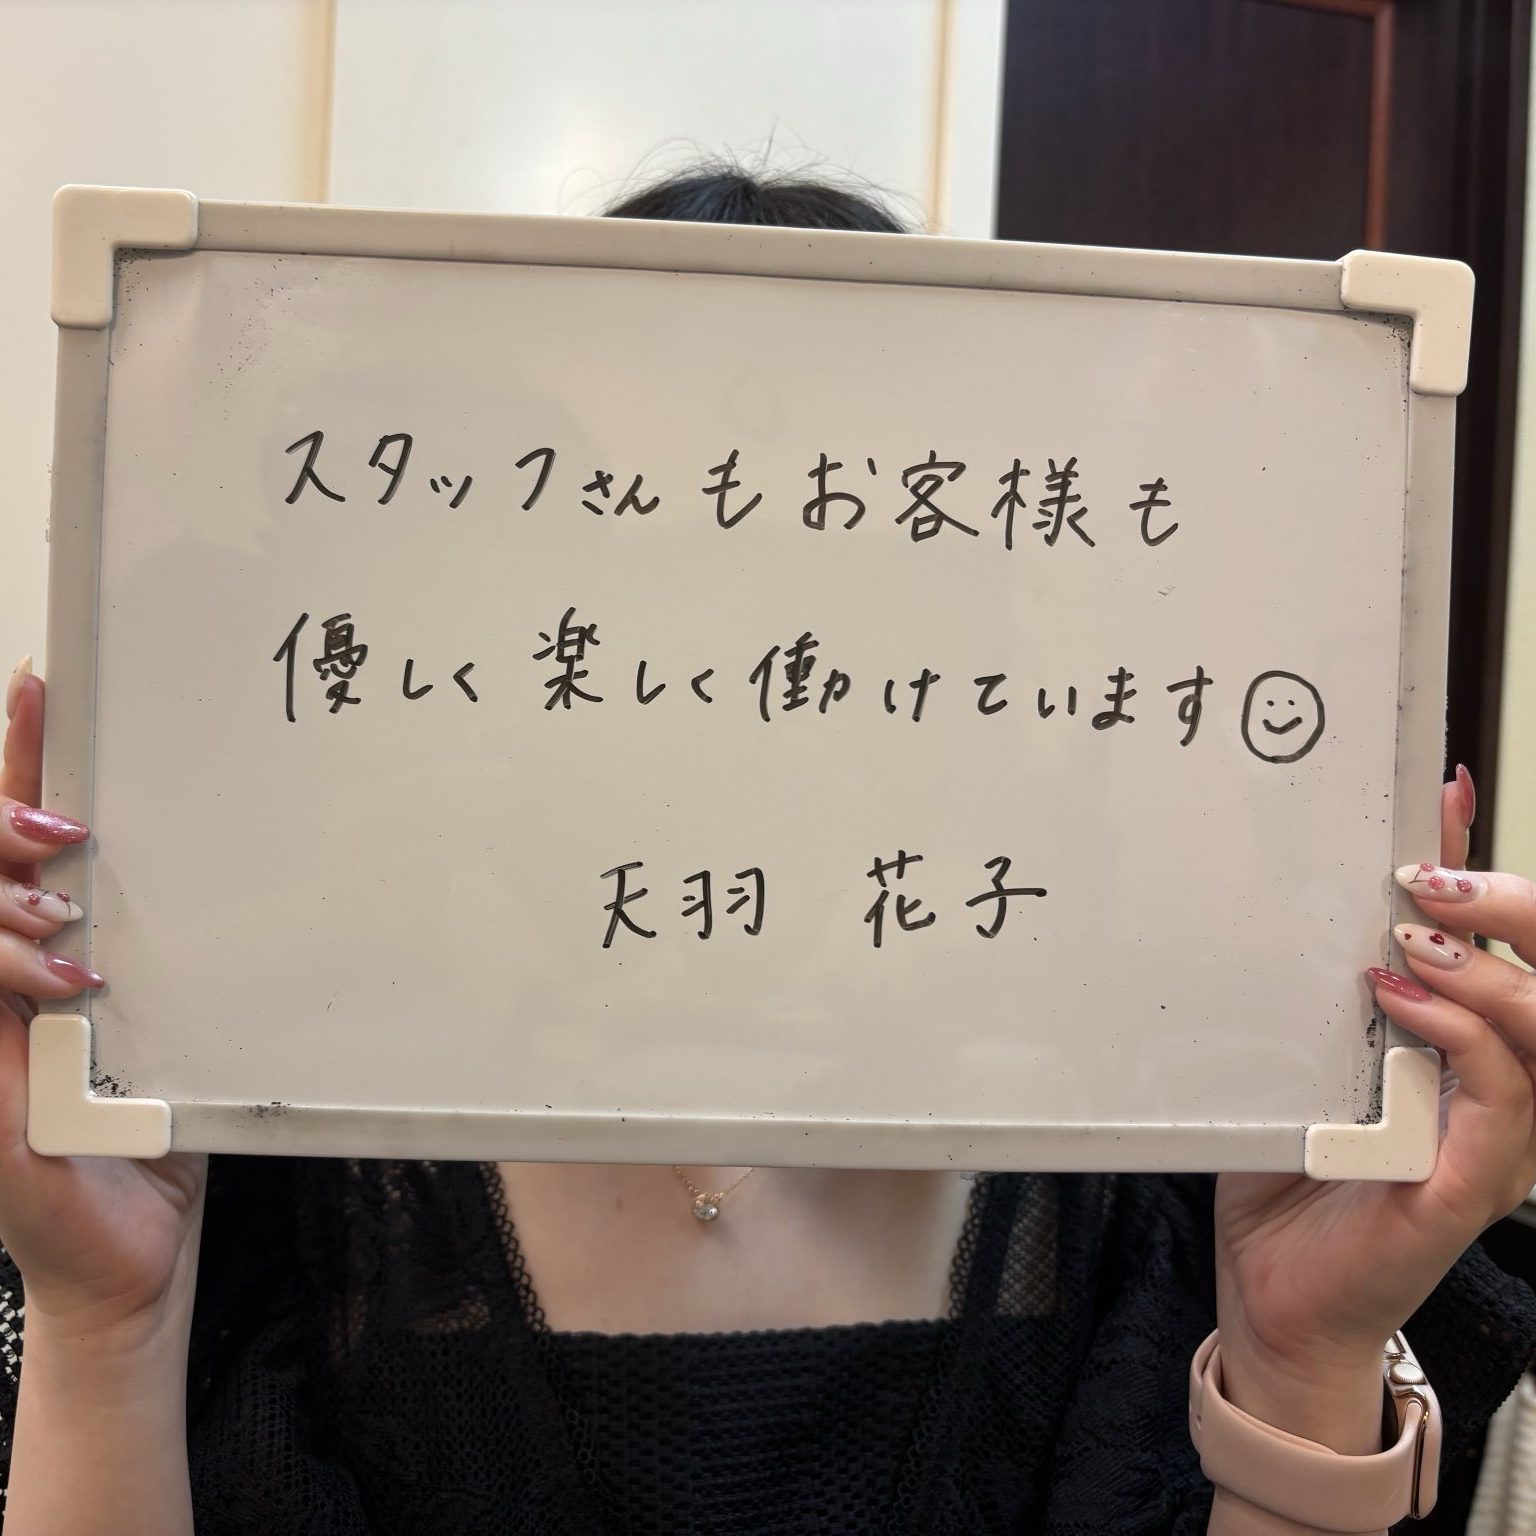 スタッフさんもお客様も
優しく楽しく働けています☺
天羽 花子